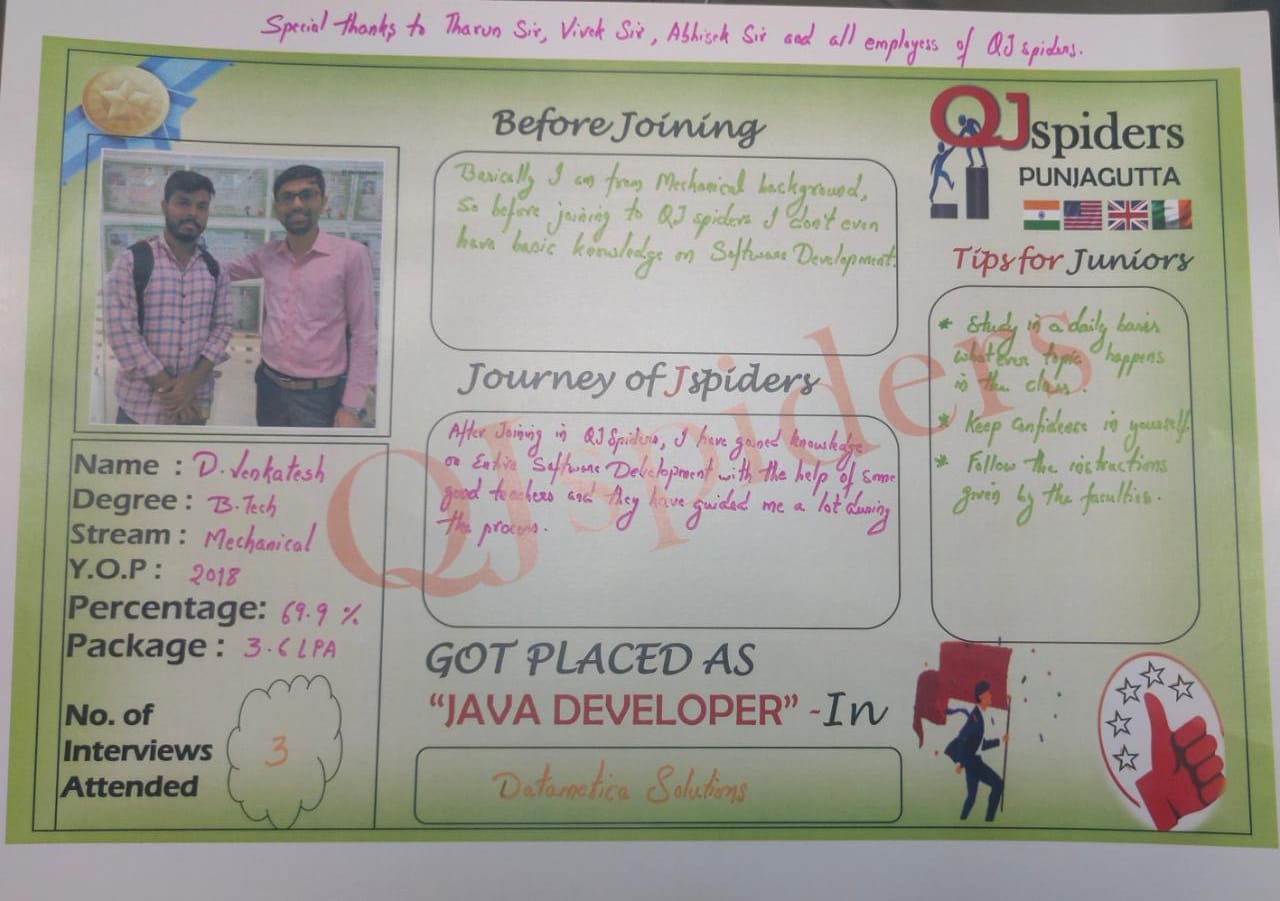 Special thanks to Tharun Sir, Vivek Sir, Abhisek Sir and all employess of QJ spiders.
Before Joining
Basically I am from Mechanical background,
So before joining to QJ spiders I don't even
have basic knowledge on Software Development.
QJspiders
PUNJAGUTTA
Tips for Juniors
* Study in a daily basis
whatever topic happens
in the class.
* Keep Confidence in yourself.
* Follow the instructions
given by the faculties.
Journey of Jspiders
After Joining in QJ Spiders, I have gained knowledge
on Entire Software Development with the help of some
good teachers and they have guided me a lot during
the process.
QJspiders
Name : D. Venkatesh
Degree : B.Tech
Stream : Mechanical
Y.O.P : 2018
Percentage: 69.9 %
Package : 3.6 LPA
No. of
Interviews
Attended
3
GOT PLACED AS
"JAVA DEVELOPER" -In
Datametica Solutions